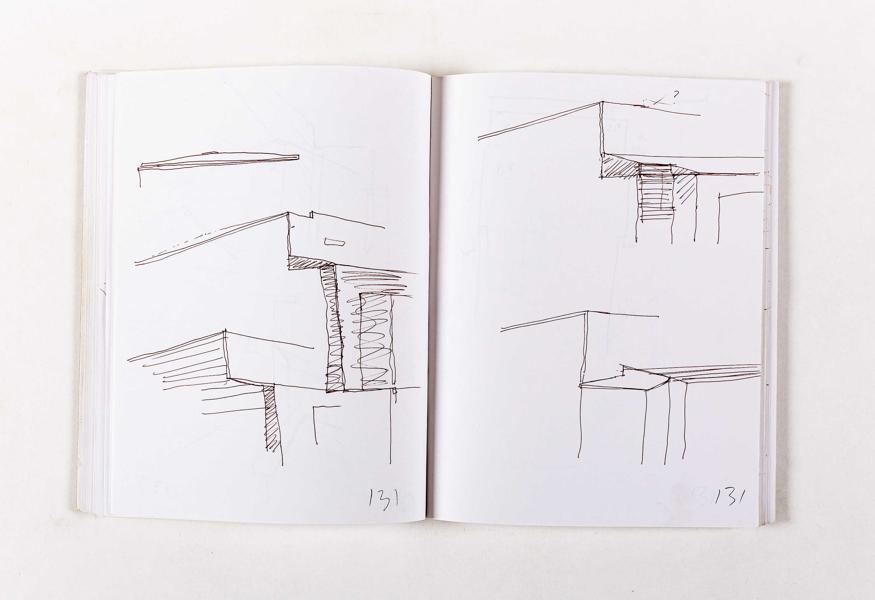 131
?
131